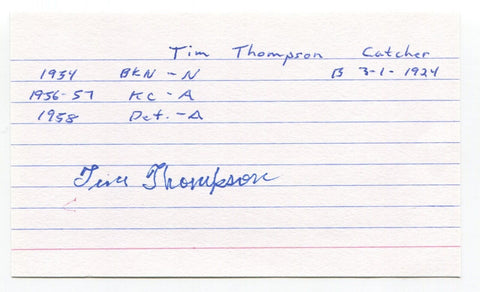 Tim Thompson Catcher
1954 BKN - N B 3-1-1924
1956-57 KC - A
1958 Det. - A
Tim Thompson